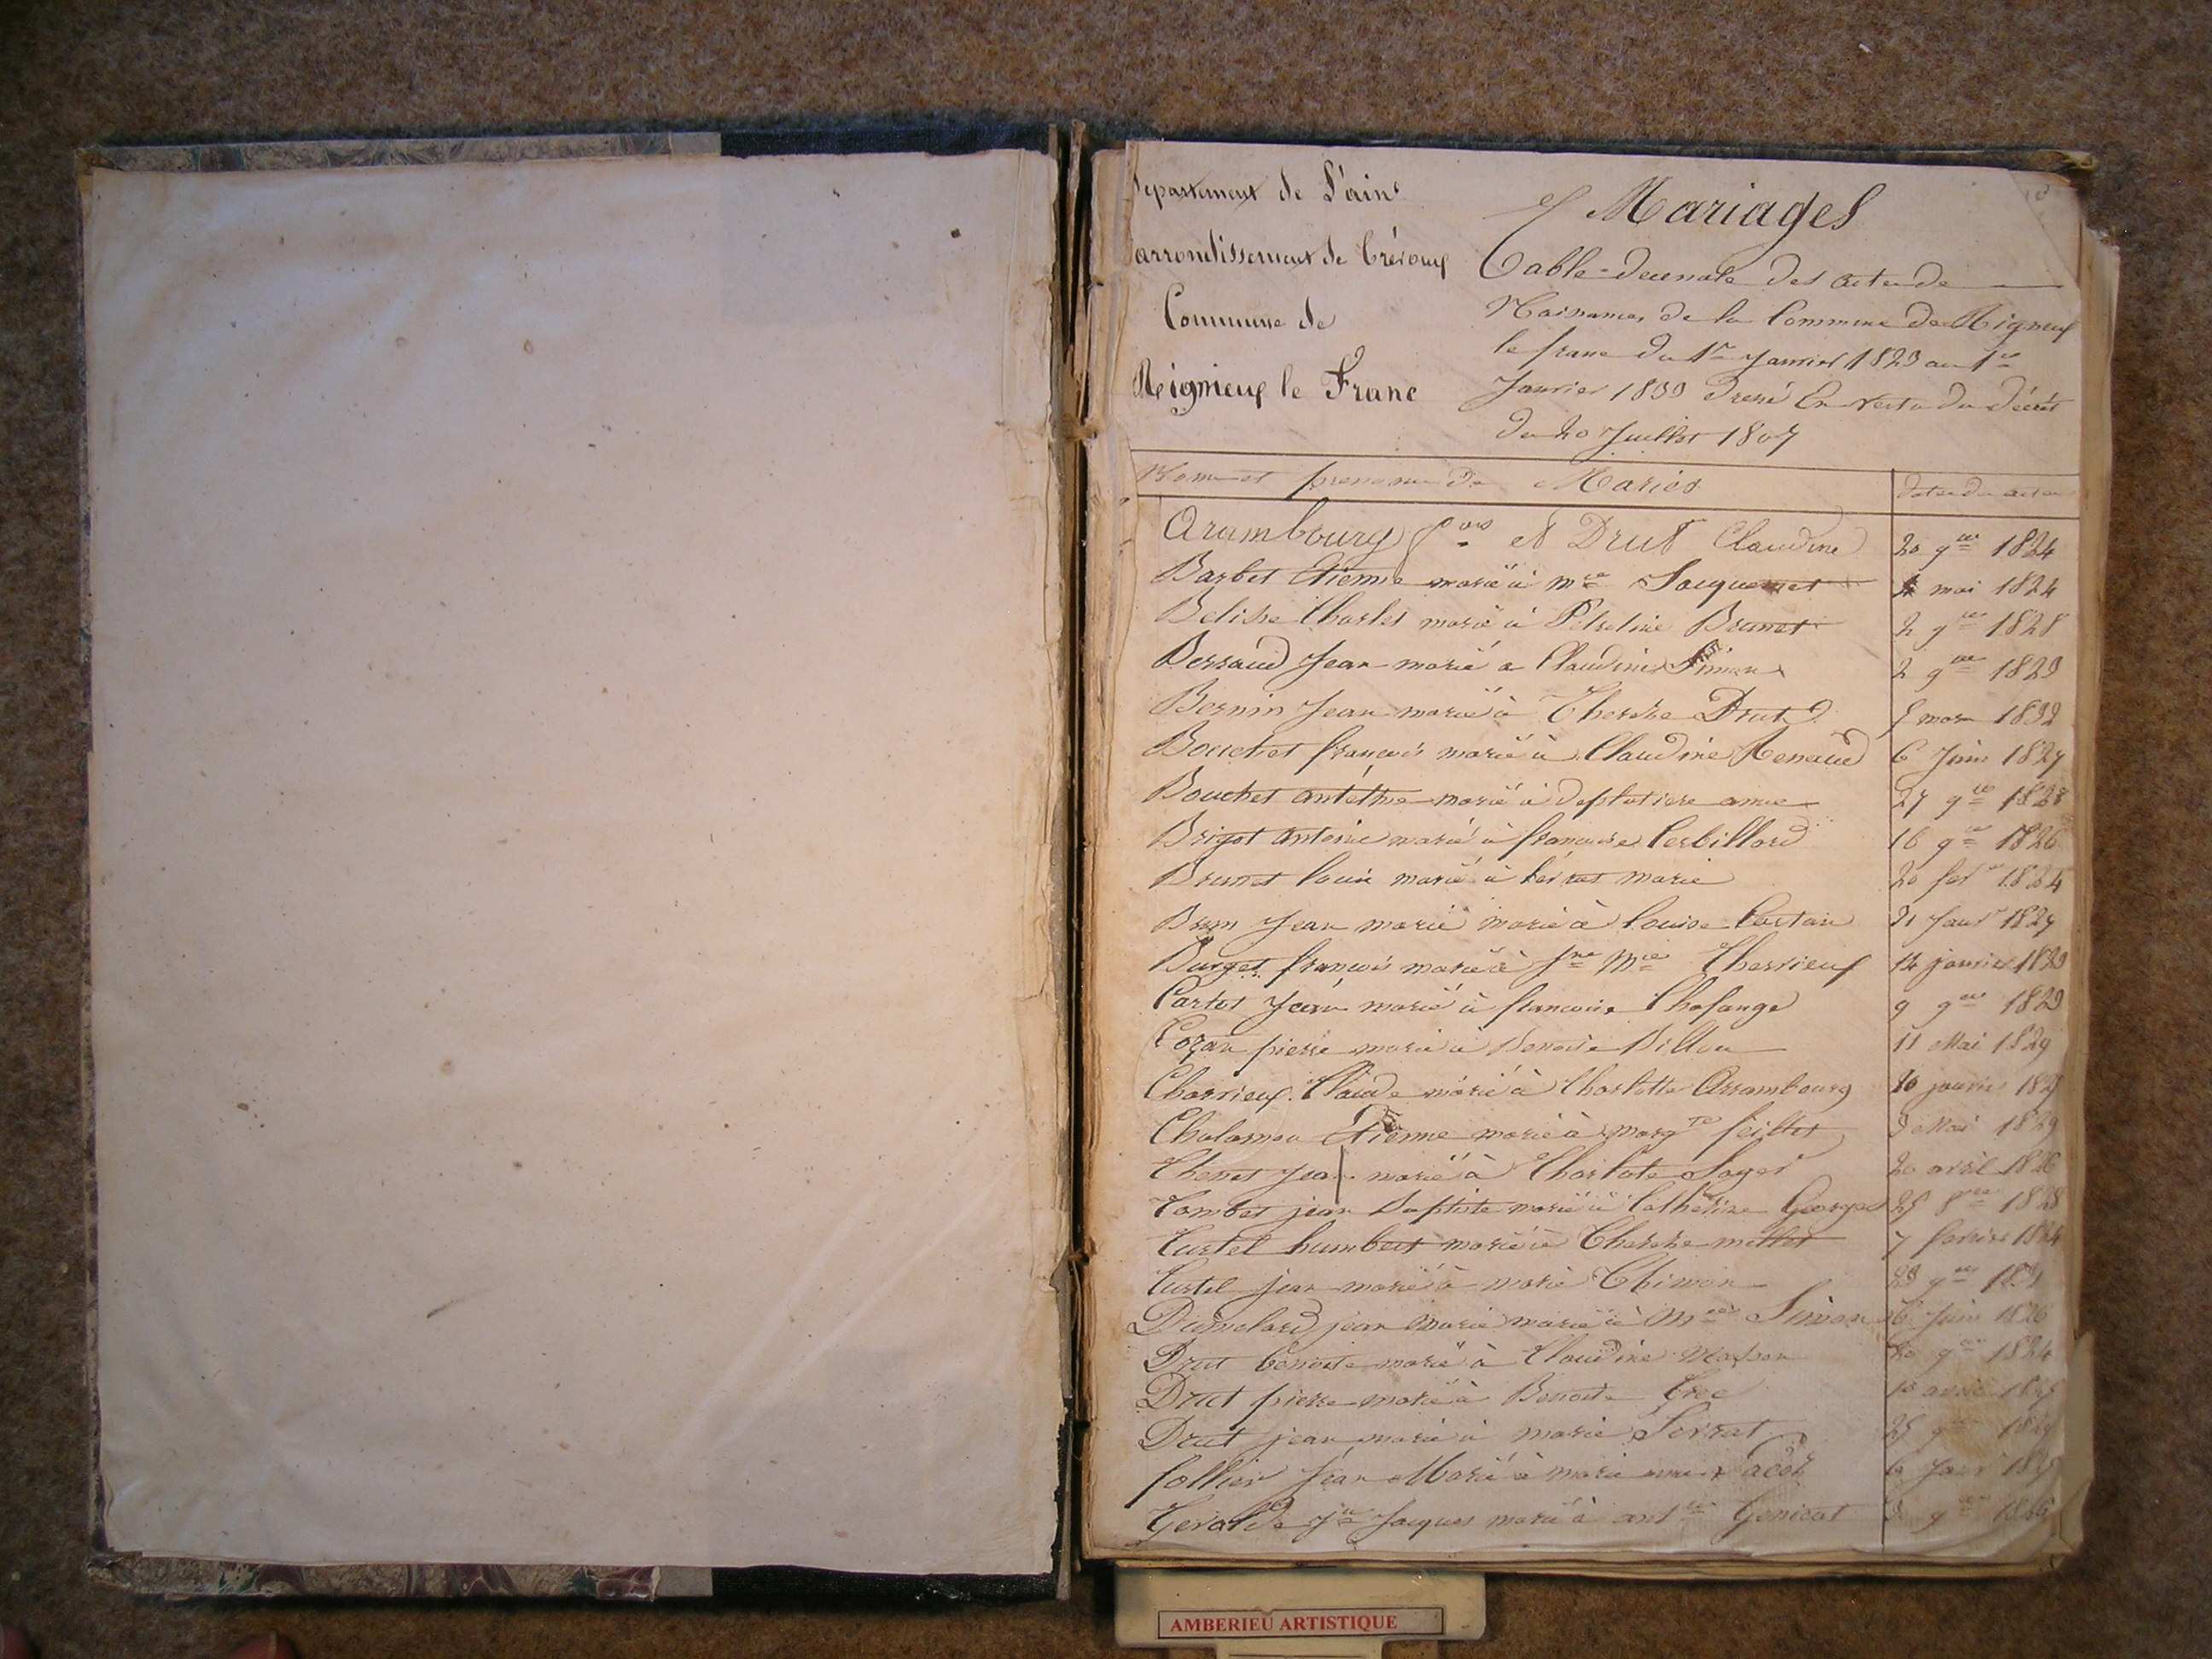 Departement de L'ain
arrondissement de Trévoux
Commune de
Reignieux le Franc
Mariages
Table decenale des actes de
Naissances de la Commune de Rigneux
le franc du 1er Janvier 1823 au 1er
Janvier 1833 Dressé En vertu du décrêt
du 20 Juillet 1807
Noms et prenoms des Mariés
dates des actes
Arambourg et Drut Claudine 20 9bre 1824
Barbet Etienne marié à Mie Jacquemet mai 1824
Belisse Charles marié à Brunet 2 9bre 1828
Berraud Jean marié a Claudine Simon 2 9bre 1829
Bernin Jean marié à Therese Drut mars 1832
Bouchet francois marié à Claudine Renaud 6 Juin 1827
Bouchet marié à anne 27 9bre 1828
Brigot antoine marié à francoise Cerbillard 16 9bre 1826
Brunet Louis marié à marie 20 fevr 1824
Brun Jean marié marié à Louise 21 Janvr 1827
Burget francois marié à Jne Mie Charrieux 14 janvier 1823
Cartet Jean marié à francoise 9 9bre 1829
Cozan pierre marié à Benoite Billon 11 Mai 1829
Charrieux Claude marié à Charlotte Arrambourg janvier
Chalamon Etienne marié à margte feillet Mai 1829
Chenet Jean marié à Charlote 20 avril 1826
Combet jean Baptiste marié à Catherine Georges 25 8bre 1828
Curtel humbert marié à Therese millet 7 fevrier 1824
Curtel jean marié à marie Thimon 9bre
Dumolard jean marié marié à Simon 6 Juin 1826
Drut benoite marié à Claudine Masson 20 9bre 1824
Drut pierre marié à Benoite
Drut jean marié à marie 25
follier Jean Marié à marie anne
Jacques marié à Genicot 9bre 1826
AMBERIEU ARTISTIQUE